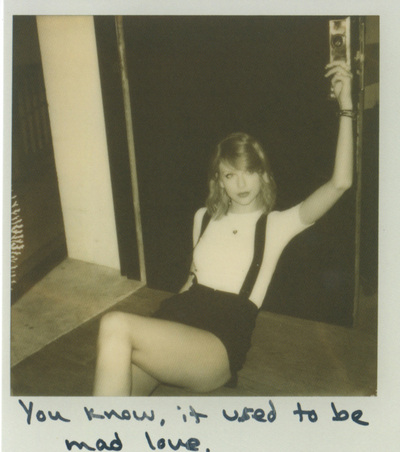 You know, it used to be
mad love.